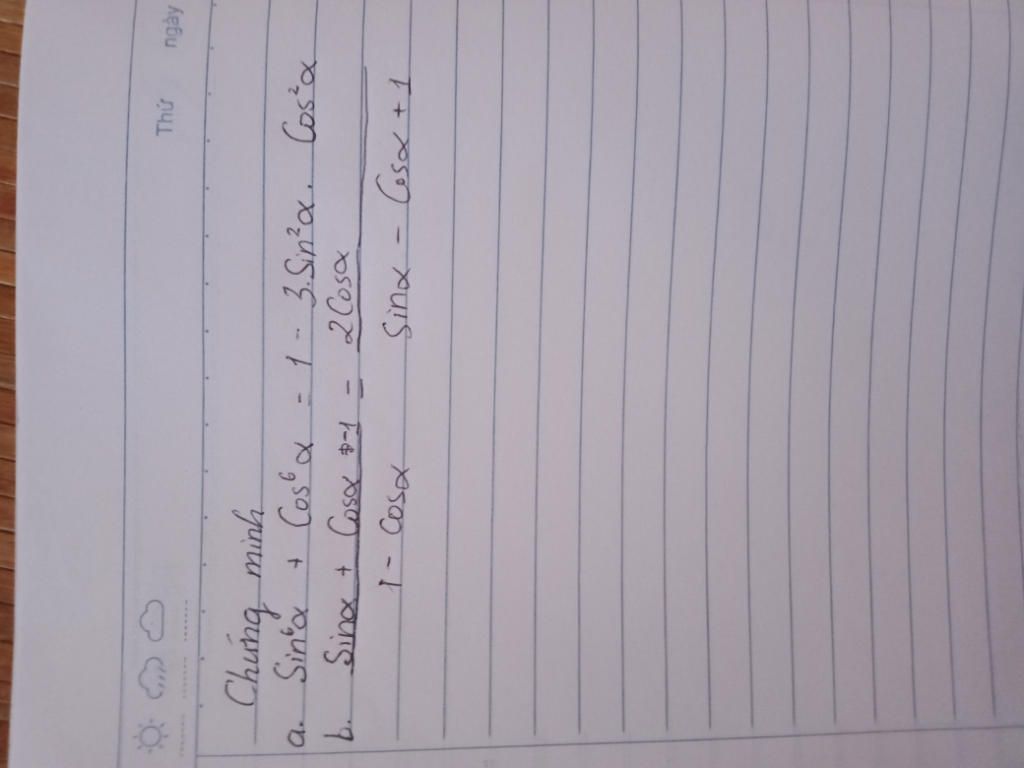 Thứ ngày
Chứng minh
a. Sin⁶α + Cos⁶α = 1 - 3.Sin²α. Cos²α
b. Sinα + Cosα -1 = 2Cosα
1 - Cosα Sinα - Cosα + 1